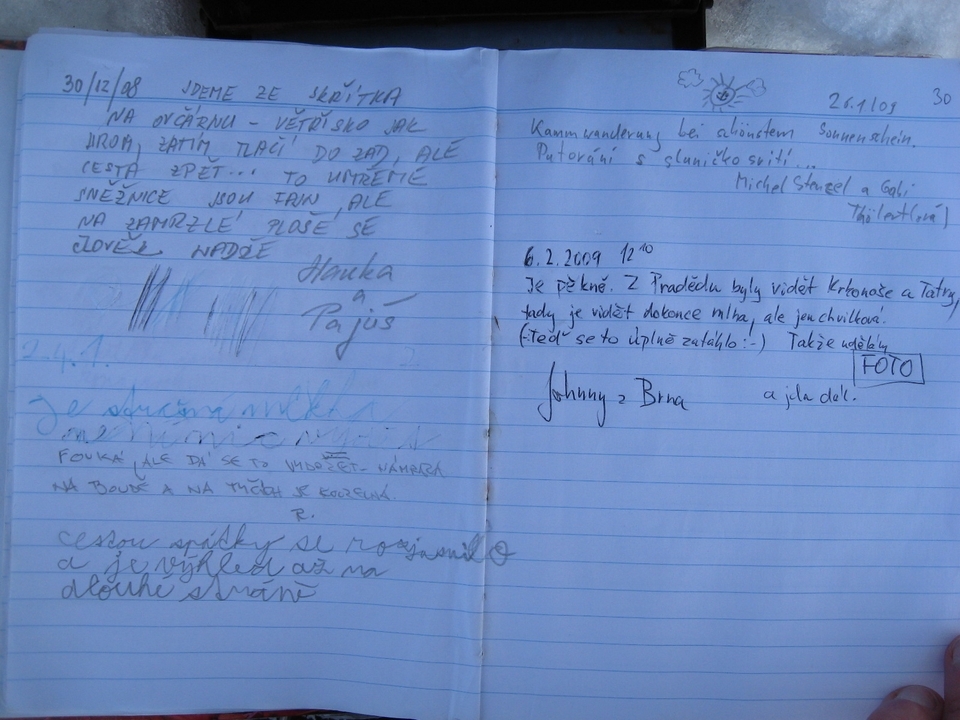 30/12/08 JDEME ZE SKŘÍTKA
NA OVČÁRNU - VĚTŘISKO JAK
HROM, ZATÍM TLAČÍ DO ZAD, ALE
CESTA ZPĚT... TO UMRZEME
SNĚŽNICE JSOU FAJN, ALE
NA ZAMRZLÉ PLOŠE SE
ČLOVĚK NADŘE
Hanka
a
Pajús
2.4.1.
Je strašná mlha
není nic vidět
FOUKÁ, ALE DÁ SE TO VYDRŽET - NÁMRAZA
NA BOUDĚ A NA TYČÍCH JE KOUZELNÁ.
R.
cestou spátky se rozjasnilo
a je výhled až na
dlouhé stráně
30
26.1/09
Kammwanderung bei schönstem Sonnenschein.
Putování s sluníčko svítí...
Michel Stenzel a Gabi
6.2.2009 12¹⁰
Je pěkně. Z Pradědu byly vidět Krkonoše a Tatry,
tady je vidět dokonce mlha, ale jen chvilková.
(Teď se to úplně zatáhlo :-) Takže udělám
FOTO
Johnny z Brna a jdu dál.